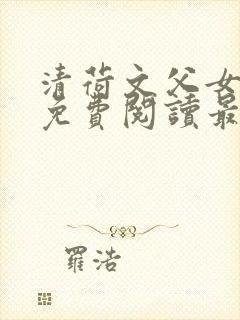 清荷文父女
免費閱讀最
羅浩